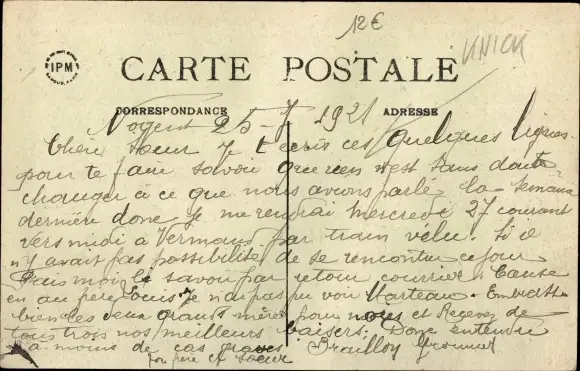 12€
KNICK
IPM
CARTE POSTALE
CORRESPONDANCE
ADRESSE
Nogent 25-7 1921
Chère sœur Je t'écris ces quelques lignes
pour te faire savoir que rien n'est sans doute
changer à ce que nous avions parlé la semaine
dernière donc Je me rendrai mercredi 27 courant
vers midi à Vermans par train vélu. Si il
n'y avait pas possibilité de se rencontrer ce jour
Fais moi le savoir par retour courrier. Cause
en au père Louis Je n'ai pas pu voir Marteau. Embrasse
bien les deux grands mères pour nous et Recevez de
tous trois nos meilleurs baisers. Donc entendu
à moins de cas graves
ton frère et sœur